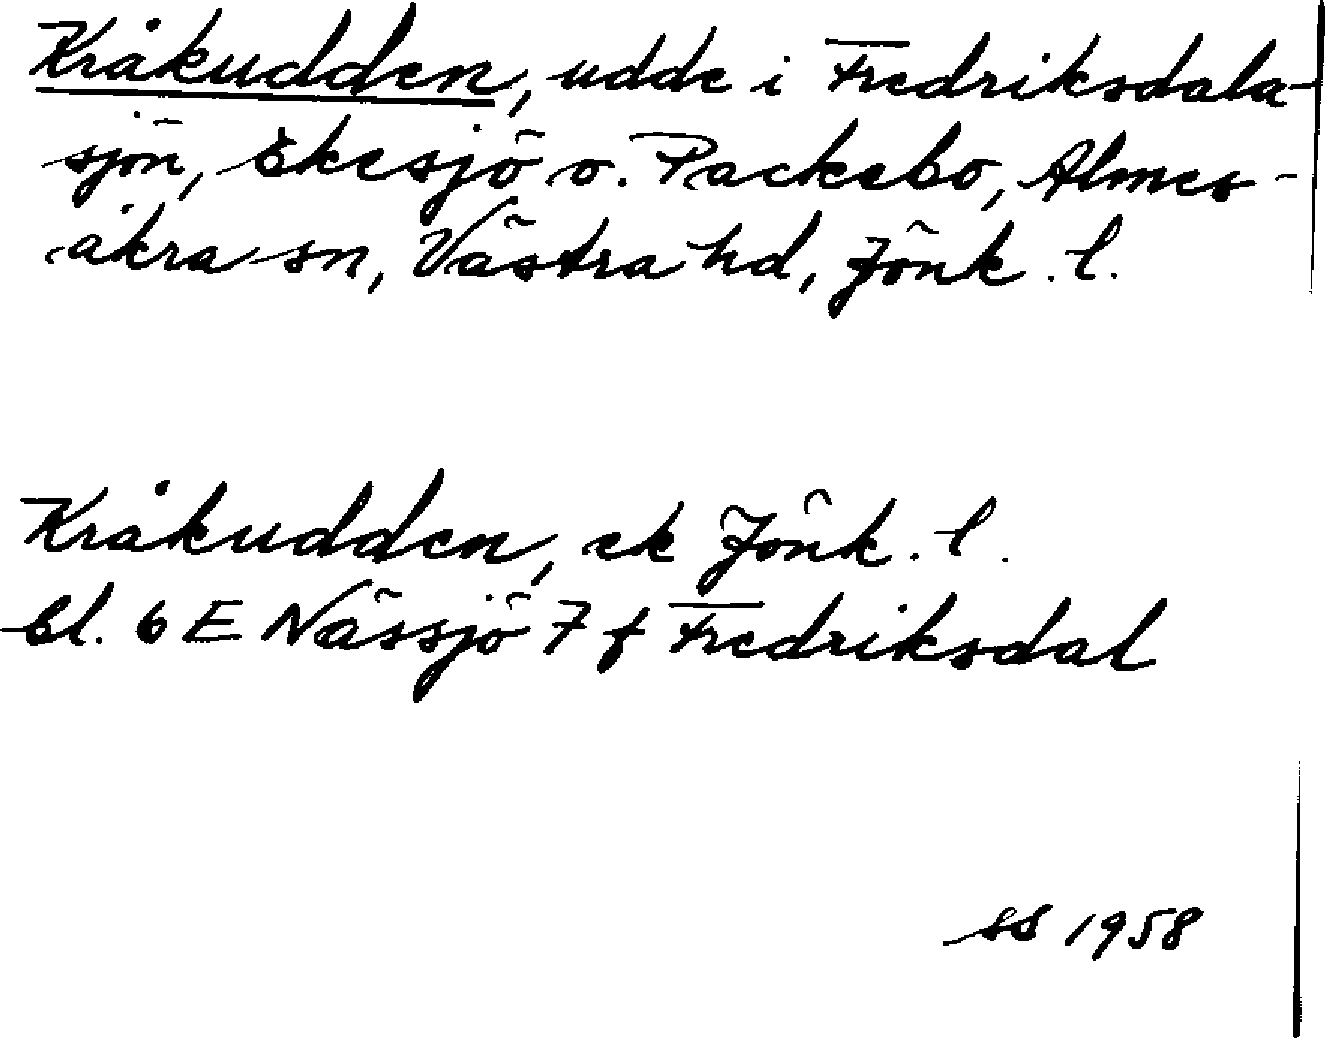 Kråkudden, udde i Fredriksdala-
sjön, Ekesjö o. Packebo, Almes-
åkra sn, Västra hd, Jönk. l.
Kråkudden, ek Jönk. l.
bl. 6 E Nässjö 7 f Fredriksdal
SS 1958